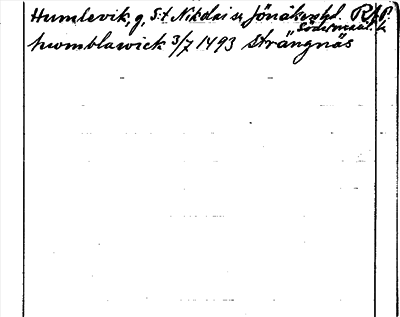 Humlevik, g, S:t Nikolai sn Jönåkers hd. RAP.
Södermanl. L
humblawick 3/7 1493 Strängnäs